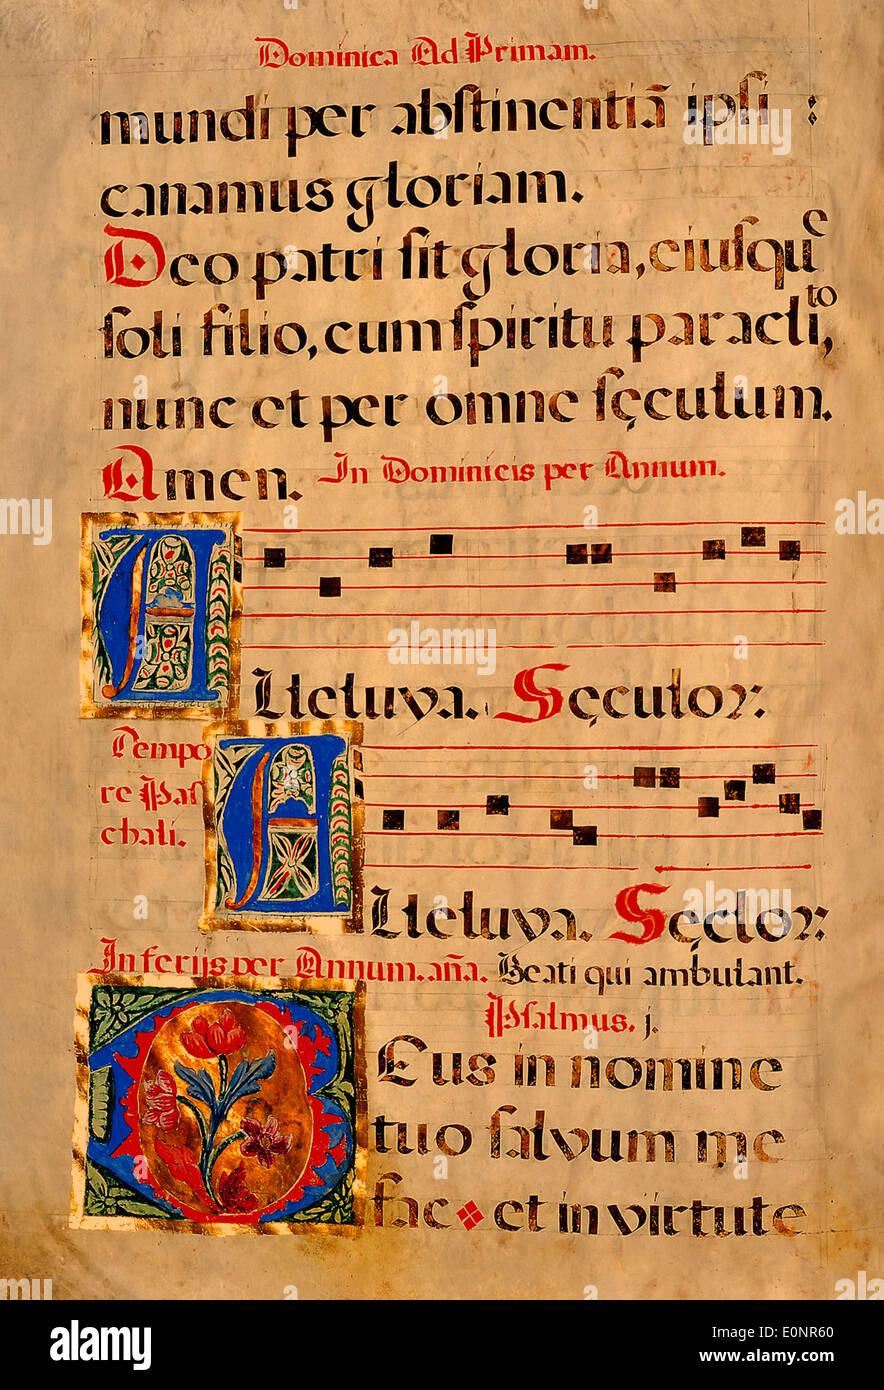 Dominica Ad Primam.
mundi per abstinentiā ipsi :
canamus gloriam.
Deo patri sit gloria, eiusque
soli filio, cum spiritu paraclito,
nunc et per omne sęculum.
Amen. In Dominicis per Annum.
Alleluya. Sęculor:
Tempo
re Pas
chali.
Alleluya. Sęclor:
In ferijs per Annum. aña. Beati qui ambulant.
Psalmus. j.
DEus in nomine
tuo salvum me
fac et in virtute
alamy stock photo
alamy
Image ID: E0NR60
www.alamy.com